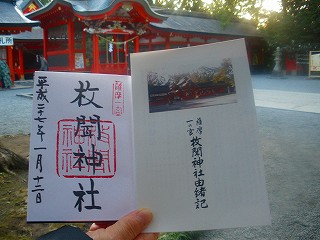 平成二十七年一月十二日
枚聞神社
薩摩一宮
薩摩
一の宮
枚聞神社由緒記
札所